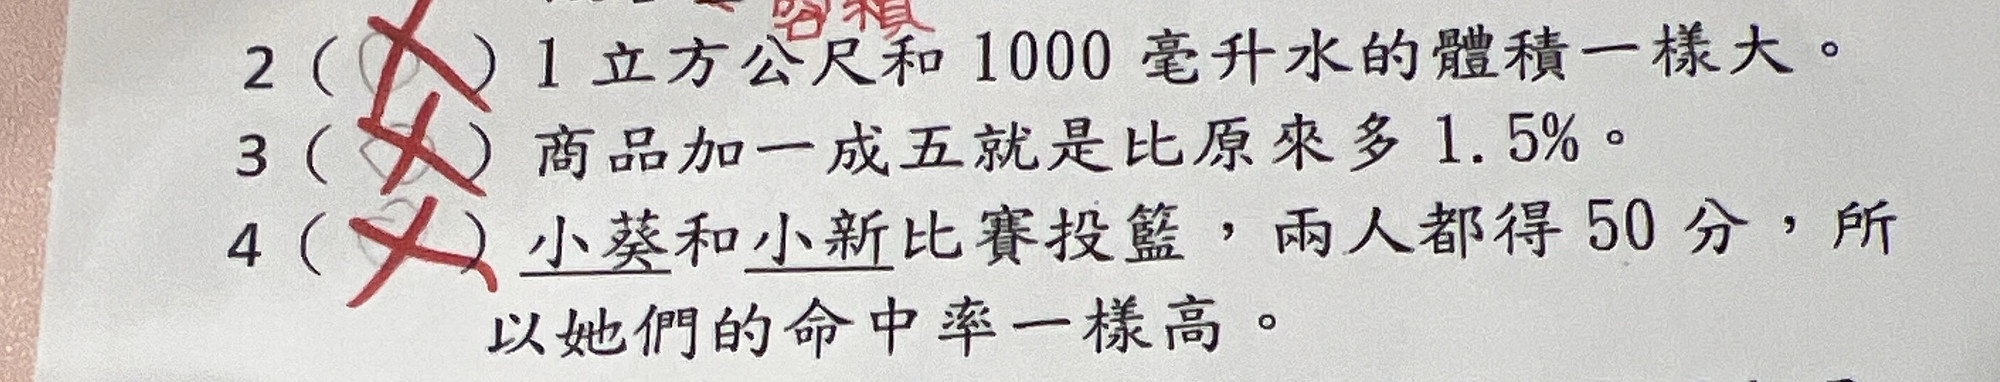 容積
2 ( ) 1 立方公尺和 1000 毫升水的體積一樣大。
3 ( ) 商品加一成五就是比原來多 1.5%。
4 ( ) 小葵和小新比賽投籃，兩人都得 50 分，所
以她們的命中率一樣高。